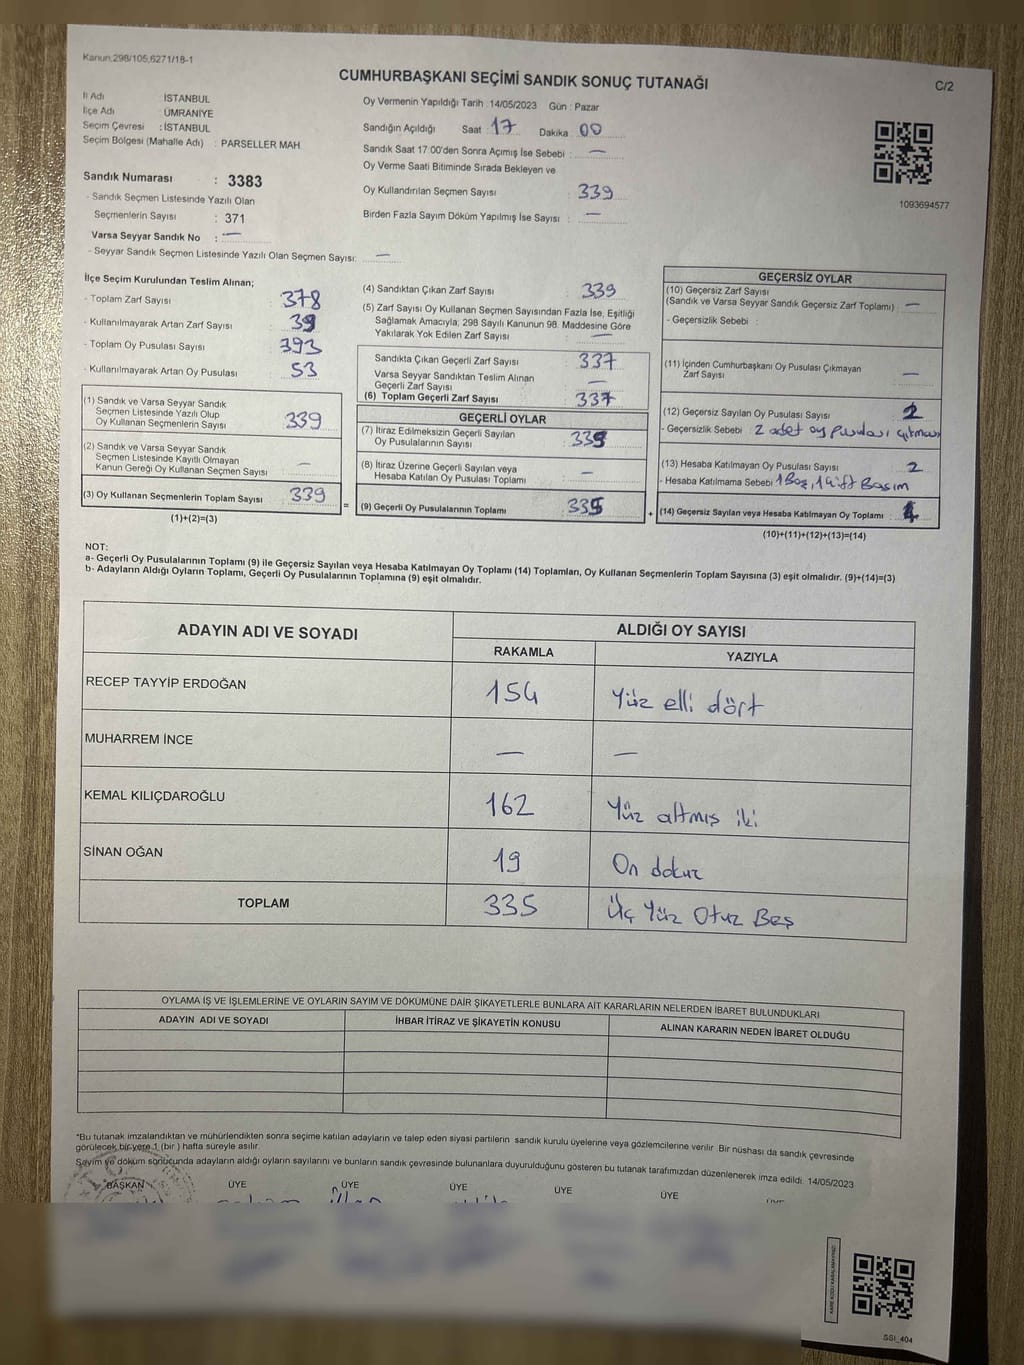 Kanun.298/105,6271/18-1
CUMHURBAŞKANI SEÇİMİ SANDIK SONUÇ TUTANAĞI
C/2
İl Adı İSTANBUL
İlçe Adı ÜMRANİYE
Seçim Çevresi : İSTANBUL
Seçim Bölgesi (Mahalle Adı) : PARSELLER MAH
Sandık Numarası : 3383
- Sandık Seçmen Listesinde Yazılı Olan
Seçmenlerin Sayısı : 371
Varsa Seyyar Sandık No : —
- Seyyar Sandık Seçmen Listesinde Yazılı Olan Seçmen Sayısı: —
Oy Vermenin Yapıldığı Tarih 14/05/2023 Gün : Pazar
Sandığın Açıldığı Saat : 17 Dakika : 00
Sandık Saat 17:00'den Sonra Açımış İse Sebebi : —
Oy Verme Saati Bitiminde Sırada Bekleyen ve
Oy Kullandırılan Seçmen Sayısı : 339
Birden Fazla Sayım Döküm Yapılmış İse Sayısı : —
1093694577
İlçe Seçim Kurulundan Teslim Alınan;
- Toplam Zarf Sayısı 378
- Kullanılmayarak Artan Zarf Sayısı 39
- Toplam Oy Pusulası Sayısı 393
- Kullanılmayarak Artan Oy Pusulası 53
(1) Sandık ve Varsa Seyyar Sandık
Seçmen Listesinde Yazılı Olup
Oy Kullanan Seçmenlerin Sayısı 339
(2) Sandık ve Varsa Seyyar Sandık
Seçmen Listesinde Kayıtlı Olmayan
Kanun Gereği Oy Kullanan Seçmen Sayısı —
(3) Oy Kullanan Seçmenlerin Toplam Sayısı 339
(1)+(2)=(3)
(4) Sandıktan Çıkan Zarf Sayısı 339
(5) Zarf Sayısı Oy Kullanan Seçmen Sayısından Fazla İse, Eşitliği
Sağlamak Amacıyla; 298 Sayılı Kanunun 98. Maddesine Göre
Yakılarak Yok Edilen Zarf Sayısı —
Sandıkta Çıkan Geçerli Zarf Sayısı 337
Varsa Seyyar Sandıktan Teslim Alınan
Geçerli Zarf Sayısı —
(6) Toplam Geçerli Zarf Sayısı 337
GEÇERLİ OYLAR
(7) İtiraz Edilmeksizin Geçerli Sayılan
Oy Pusulalarının Sayısı 335
(8) İtiraz Üzerine Geçerli Sayılan veya
Hesaba Katılan Oy Pusulası Toplamı —
= (9) Geçerli Oy Pusulalarının Toplamı 335 +
GEÇERSİZ OYLAR
(10) Geçersiz Zarf Sayısı
(Sandık ve Varsa Seyyar Sandık Geçersiz Zarf Toplamı) —
- Geçersizlik Sebebi :
(11) İçinden Cumhurbaşkanı Oy Pusulası Çıkmayan
Zarf Sayısı —
(12) Geçersiz Sayılan Oy Pusulası Sayısı 2
- Geçersizlik Sebebi : 2 adet oy pusulası çıkması
(13) Hesaba Katılmayan Oy Pusulası Sayısı 2
- Hesaba Katılmama Sebebi 1 Boş, 1 çift Basım
(14) Geçersiz Sayılan veya Hesaba Katılmayan Oy Toplamı 4
(10)+(11)+(12)+(13)=(14)
NOT:
a- Geçerli Oy Pusulalarının Toplamı (9) ile Geçersiz Sayılan veya Hesaba Katılmayan Oy Toplamı (14) Toplamları, Oy Kullanan Seçmenlerin Toplam Sayısına (3) eşit olmalıdır. (9)+(14)=(3)
b- Adayların Aldığı Oyların Toplamı, Geçerli Oy Pusulalarının Toplamına (9) eşit olmalıdır.
ADAYIN ADI VE SOYADI ALDIĞI OY SAYISI
RAKAMLA YAZIYLA
RECEP TAYYİP ERDOĞAN 154 Yüz elli dört
MUHARREM İNCE — —
KEMAL KILIÇDAROĞLU 162 Yüz altmış iki
SİNAN OĞAN 19 On dokuz
TOPLAM 335 Üç Yüz Otuz Beş
OYLAMA İŞ VE İŞLEMLERİNE VE OYLARIN SAYIM VE DÖKÜMÜNE DAİR ŞİKAYETLERLE BUNLARA AİT KARARLARIN NELERDEN İBARET BULUNDUKLARI
ADAYIN ADI VE SOYADI İHBAR İTİRAZ VE ŞİKAYETİN KONUSU ALINAN KARARIN NEDEN İBARET OLDUĞU
*Bu tutanak imzalandıktan ve mühürlendikten sonra seçime katılan adayların ve talep eden siyasi partilerin sandık kurulu üyelerine veya gözlemcilerine verilir. Bir nüshası da sandık çevresinde
görülecek bir yere 1 (bir) hafta süreyle asılır.
Sayım ve döküm sonucunda adayların aldığı oyların sayılarını ve bunların sandık çevresinde bulunanlara duyurulduğunu gösteren bu tutanak tarafımızdan düzenlenerek imza edildi. 14/05/2023
BAŞKAN ÜYE ÜYE ÜYE ÜYE ÜYE
SSI_404